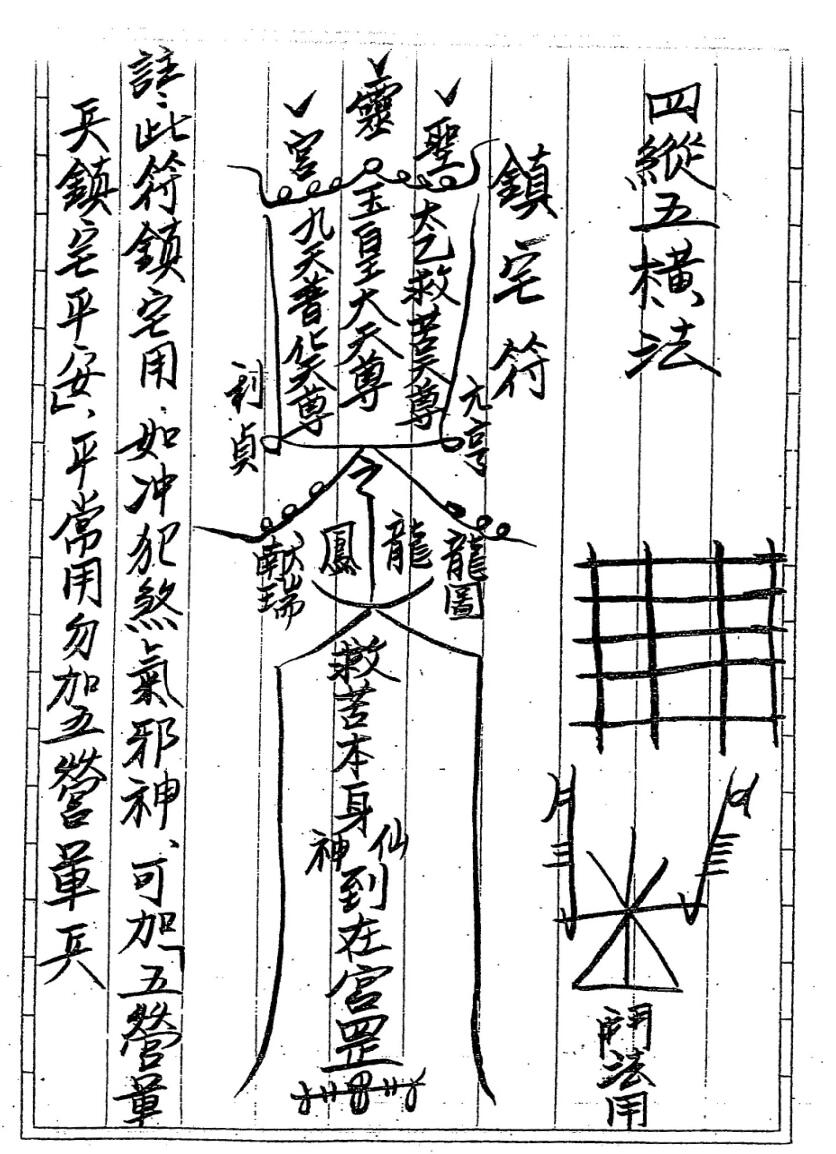 四縱五橫法
鬥法用
鎮宅符
聖
靈
宮
太乙救苦天尊
玉皇大天尊
九天普化天尊
元亨
利貞
龍圖
龍
鳳
獻瑞
救苦本身
仙
神
到在宮罡
註、此符鎮宅用、如冲犯煞氣邪神、可加「五營軍
兵鎮宅平安」、平常用勿加五營軍兵